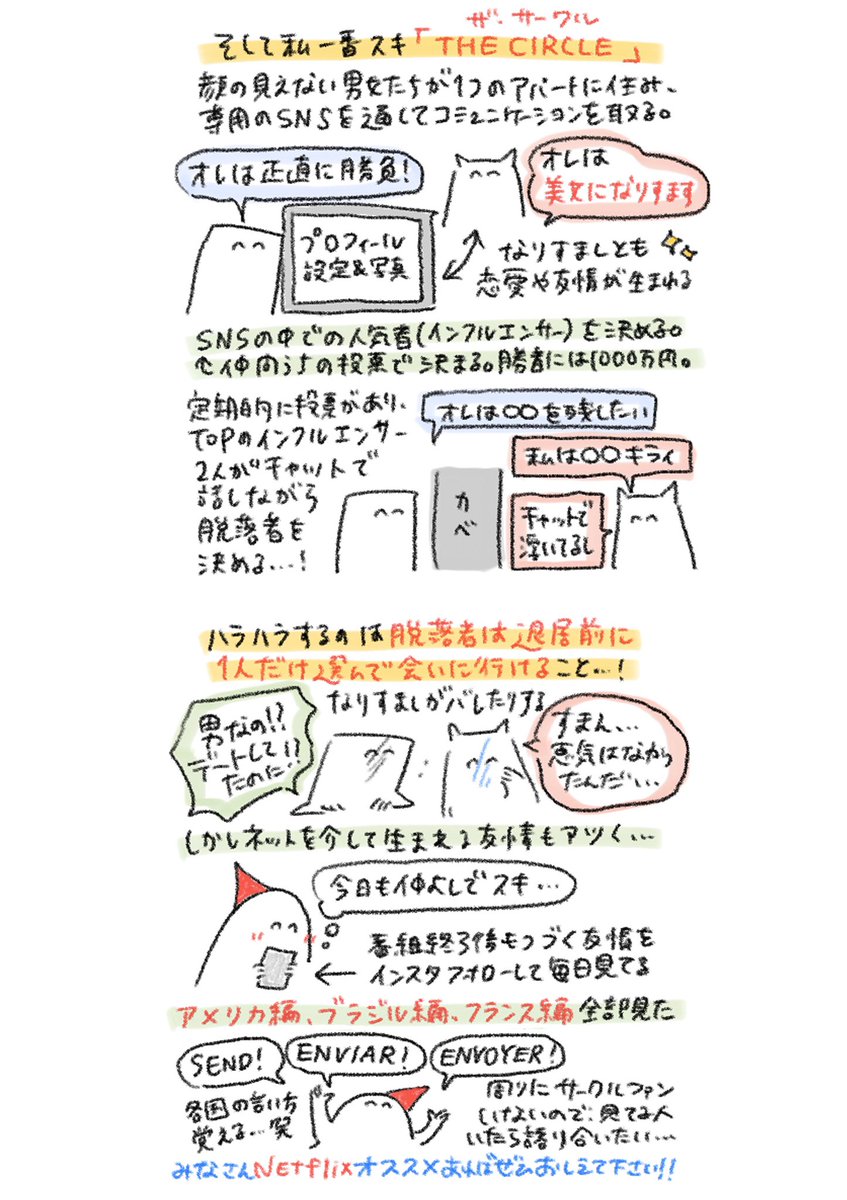 ザ・サークル
そして私一番スキ「THE CIRCLE」
顔の見えない男女たちが1つのアパートに住み、
専用のSNSを通してコミュニケーションを取る。
オレは正直に勝負!
オレは
美女になりすます
プロフィール
設定&写真
なりすましとも
恋愛や友情が生まれる
SNSの中での人気者(インフルエンサー)を決める。
仲間うちの投票で決まる。勝者には1000万円。
定期的に投票があり、
TOPのインフルエンサー
2人がチャットで
話しながら
脱落者を
決める…!
オレは〇〇を残したい
私は〇〇キライ
カベ
チャットで
浮いてるし
ハラハラするのは脱落者は退居前に
1人だけ選んで会いに行けること…!
なりすましがバレたりする
男なの!?
デートして
たのに!?
すまん…
悪気はなかっ
たんだ…
しかしネットを介して生まれる友情もアツく…
今日も仲よしでスキ…
番組終了後もつづく友情を
インスタフォローして毎日見てる
アメリカ編、ブラジル編、フランス編全部見た
SEND!
ENVIAR!
ENVOYER!
各国の言い方
覚える…笑
周りにサークルファン
いたら語り合いたい…
みなさんNETflixオススメあればぜひおしえて下さい!!